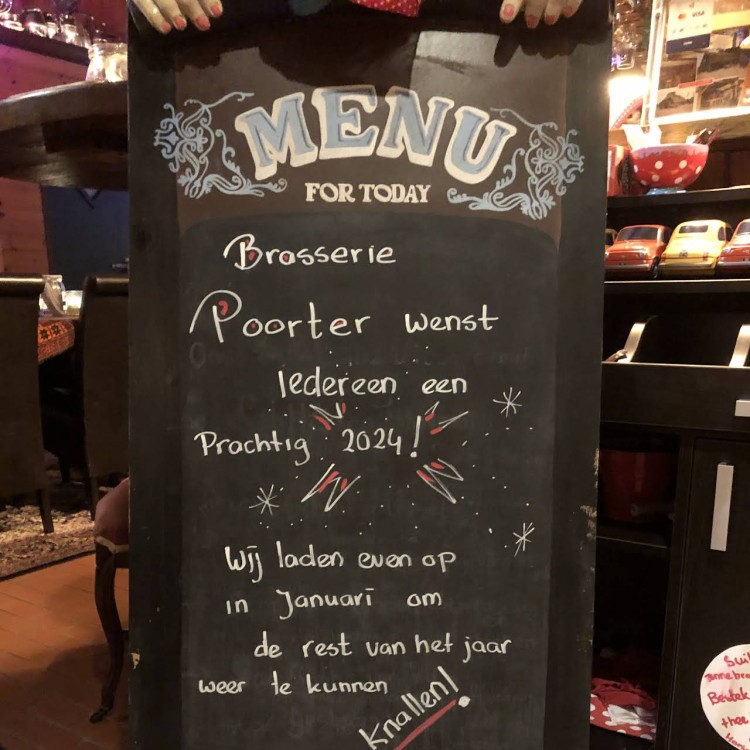 MENU
FOR TODAY
Brasserie
Poorter wenst
Iedereen een
Prachtig 2024!
Wij laden even op
in Januari om
de rest van het jaar
weer te kunnen
Knallen!
VISA